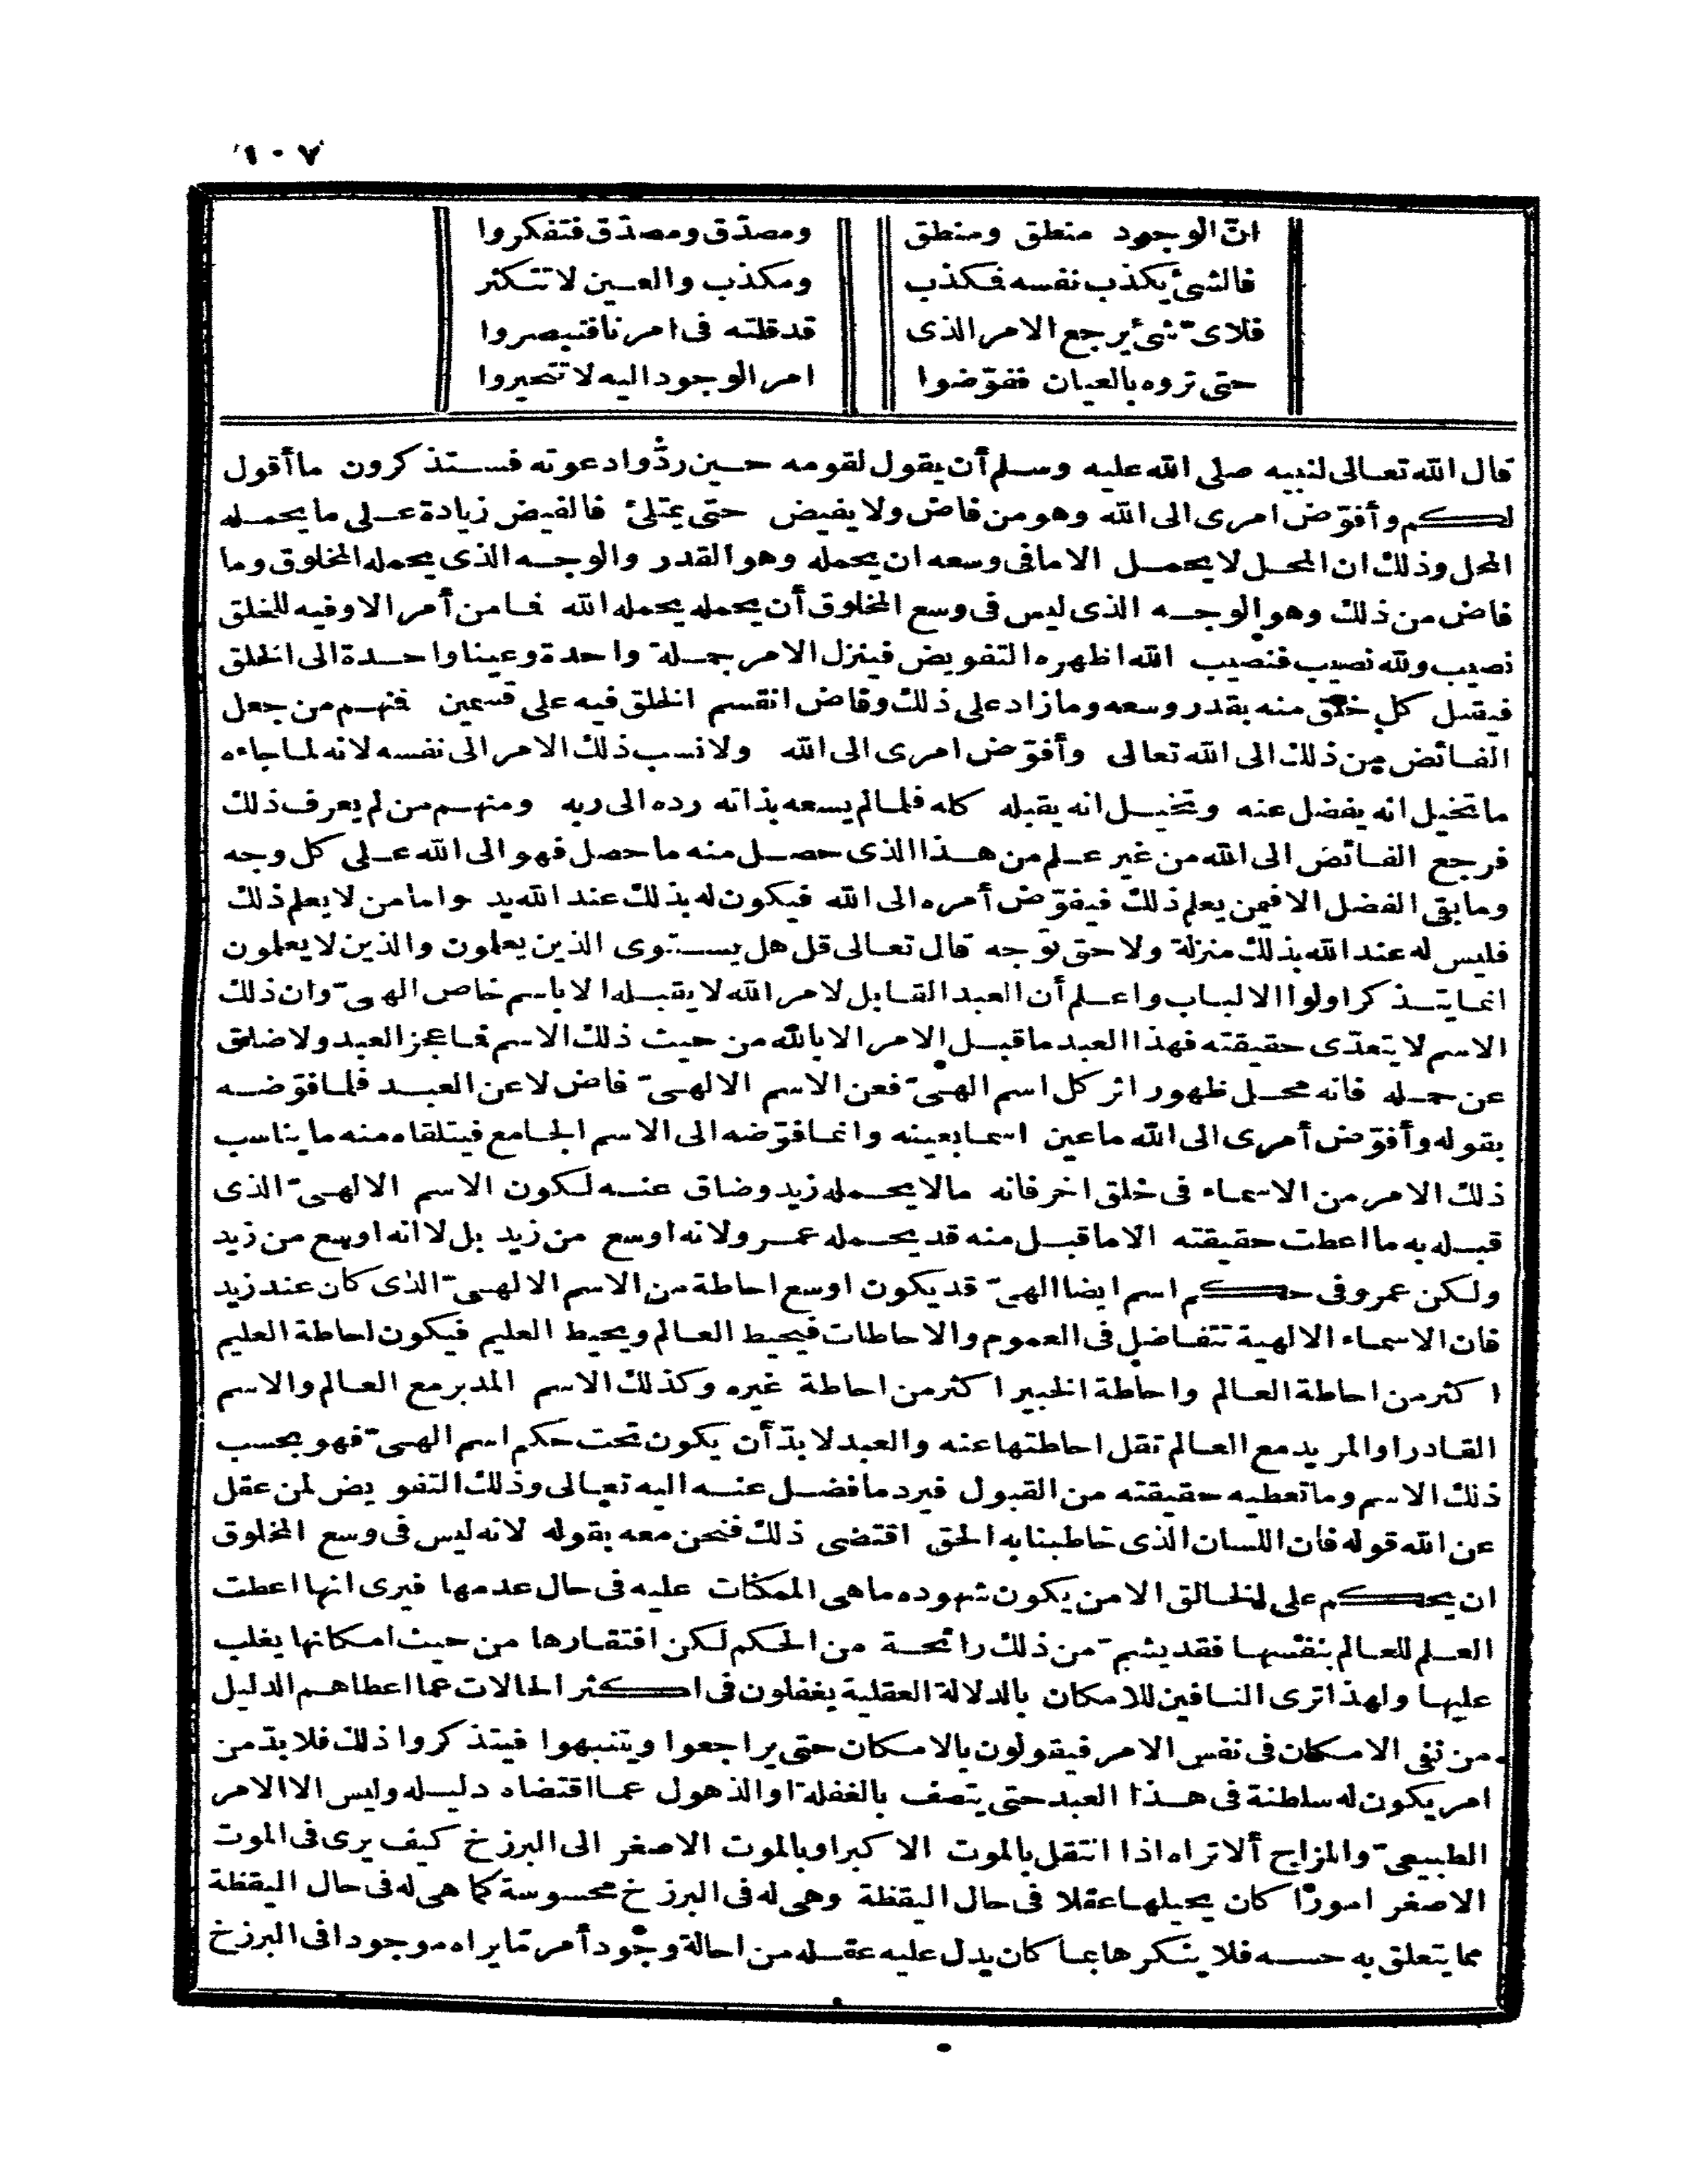 ١٠٧
انّ الوجود منطق ومنطق ومصدّق ومصدّق فتفكروا
فالشئ يكذب نفسه فكذب ومكذب والعين لا تتكثر
فلاىّ شئ يرجع الامر الذى قد قلته فى امرنا فتبصروا
حتى تروه بالعيان ففوّضوا امر الوجود اليه لا تتحيروا
قال الله تعالى لنبيه صلى الله عليه وسلم أن يقول لقومه حين ردّوا دعوته فستذكرون ما أقول
لكم وأفوّض امرى الى الله وهو من فاض ولا يفيض حتى يمتلئ فالفيض زيادة على ما يحمله
المحل وذلك ان المحل لا يحمل الا ما فى وسعه ان يحمله وهو القدر والوجه الذى يحمله المخلوق وما
فاض من ذلك وهو الوجه الذى ليس فى وسع المخلوق أن يحمله يحمله الله فما من أمر الا وفيه للخلق
نصيب ولله نصيب فنصيب الله اظهره التفويض فينزل الامر جملة واحدة وعينا واحدة الى الخلق
فيقبل كل خلق منه بقدر وسعه وما زاد على ذلك وفاض انقسم الخلق فيه على قسمين فنهم من جعل
الفائض من ذلك الى الله تعالى وأفوّض امرى الى الله ولا نسب ذلك الامر الى نفسه لانه لما جاءه
ما تخيل انه يفضل عنه وتخيل انه يقبله كله فلما لم يسعه بذاته رده الى ربه ومنهم من لم يعرف ذلك
فرجع الفائض الى الله من غير علم من هذا الذى حصل منه ما حصل فهو الى الله على كل وجه
وما بقى الفضل الا فيمن يعلم ذلك فيفوّض أمره الى الله فيكون له بذلك عند الله يد واما من لا يعلم ذلك
فليس له عند الله بذلك منزلة ولا حق توجه قال تعالى قل هل يستوى الذين يعلمون والذين لا يعلمون
انما يتذكر اولوا الالباب واعلم أن العبد القابل لامر الله لا يقبله الا باسم خاص الهىّ وان ذلك
الاسم لا يتعدّى حقيقته فهذا العبد ما قبل الامر الا بالله من حيث ذلك الاسم فما عجز العبد ولا ضاق
عن حمله فانه محل ظهور اثر كل اسم الهىّ فعن الاسم الالهىّ فاض لا عن العبد فلما فوّضه
بقوله وأفوّض أمرى الى الله ما عين اسما بعينه وانما فوّضه الى الاسم الجامع فيتلقاه منه ما يناسب
ذلك الامر من الاسماء فى خلق اخر فانه ما لا يحمله زيد وضاق عنه لكون الاسم الالهىّ الذى
قبله به ما اعطت حقيقته الا ما قبل منه قد يحمله عمرو لانه اوسع من زيد بل لا انه اوسع من زيد
ولكن عمرو فى حكم اسم ايضا الهىّ قد يكون اوسع احاطة من الاسم الالهىّ الذى كان عند زيد
فان الاسماء الالهية تتفاضل فى العموم والاحاطات فيحيط العالم ويحيط العليم فيكون احاطة العليم
اكثر من احاطة العالم واحاطة الخبير اكثر من احاطة غيره وكذلك الاسم المدبر مع العالم والاسم
القادر او المريد مع العالم تقل احاطتها عنه والعبد لا بدّ أن يكون تحت حكم اسم الهىّ فهو بحسب
ذلك الاسم وما تعطيه حقيقته من القبول فيرد ما فضل عنه اليه تعالى وذلك التفويض لمن عقل
عن الله قوله فان اللسان الذى خاطبنا به الحق اقتضى ذلك فنحن معه بقوله لانه ليس فى وسع المخلوق
ان يحكم على الخالق الا من يكون شهوده ما هى الممكنات عليه فى حال عدمها فيرى انها اعطت
العلم للعالم بنفسها فقد يشمّ من ذلك رائحة من الحكم لكن افتقارها من حيث امكانها يغلب
عليها ولهذا ترى النافين للامكان بالدلالة العقلية يغفلون فى اكثر الحالات عما اعطاهم الدليل
من نفى الامكان فى نفس الامر فيقولون بالامكان حتى يراجعوا ويتنبهوا فيتذكروا ذلك فلا بدّ من
امر يكون له سلطنة فى هذا العبد حتى يتصف بالغفلة او الذهول عما اقتضاه دليله وليس الا الامر
الطبيعىّ والمزاج ألا تراه اذا انتقل بالموت الاكبر او بالموت الاصغر الى البرزخ كيف يرى فى الموت
الاصغر امورًا كان يحيلها عقلا فى حال اليقظة وهى له فى البرزخ محسوسة كما هى له فى حال اليقظة
مما يتعلق به حسه فلا ينكرها بما كان يدل عليه عقله من احالة وجود أمر مّا يراه موجودا فى البرزخ